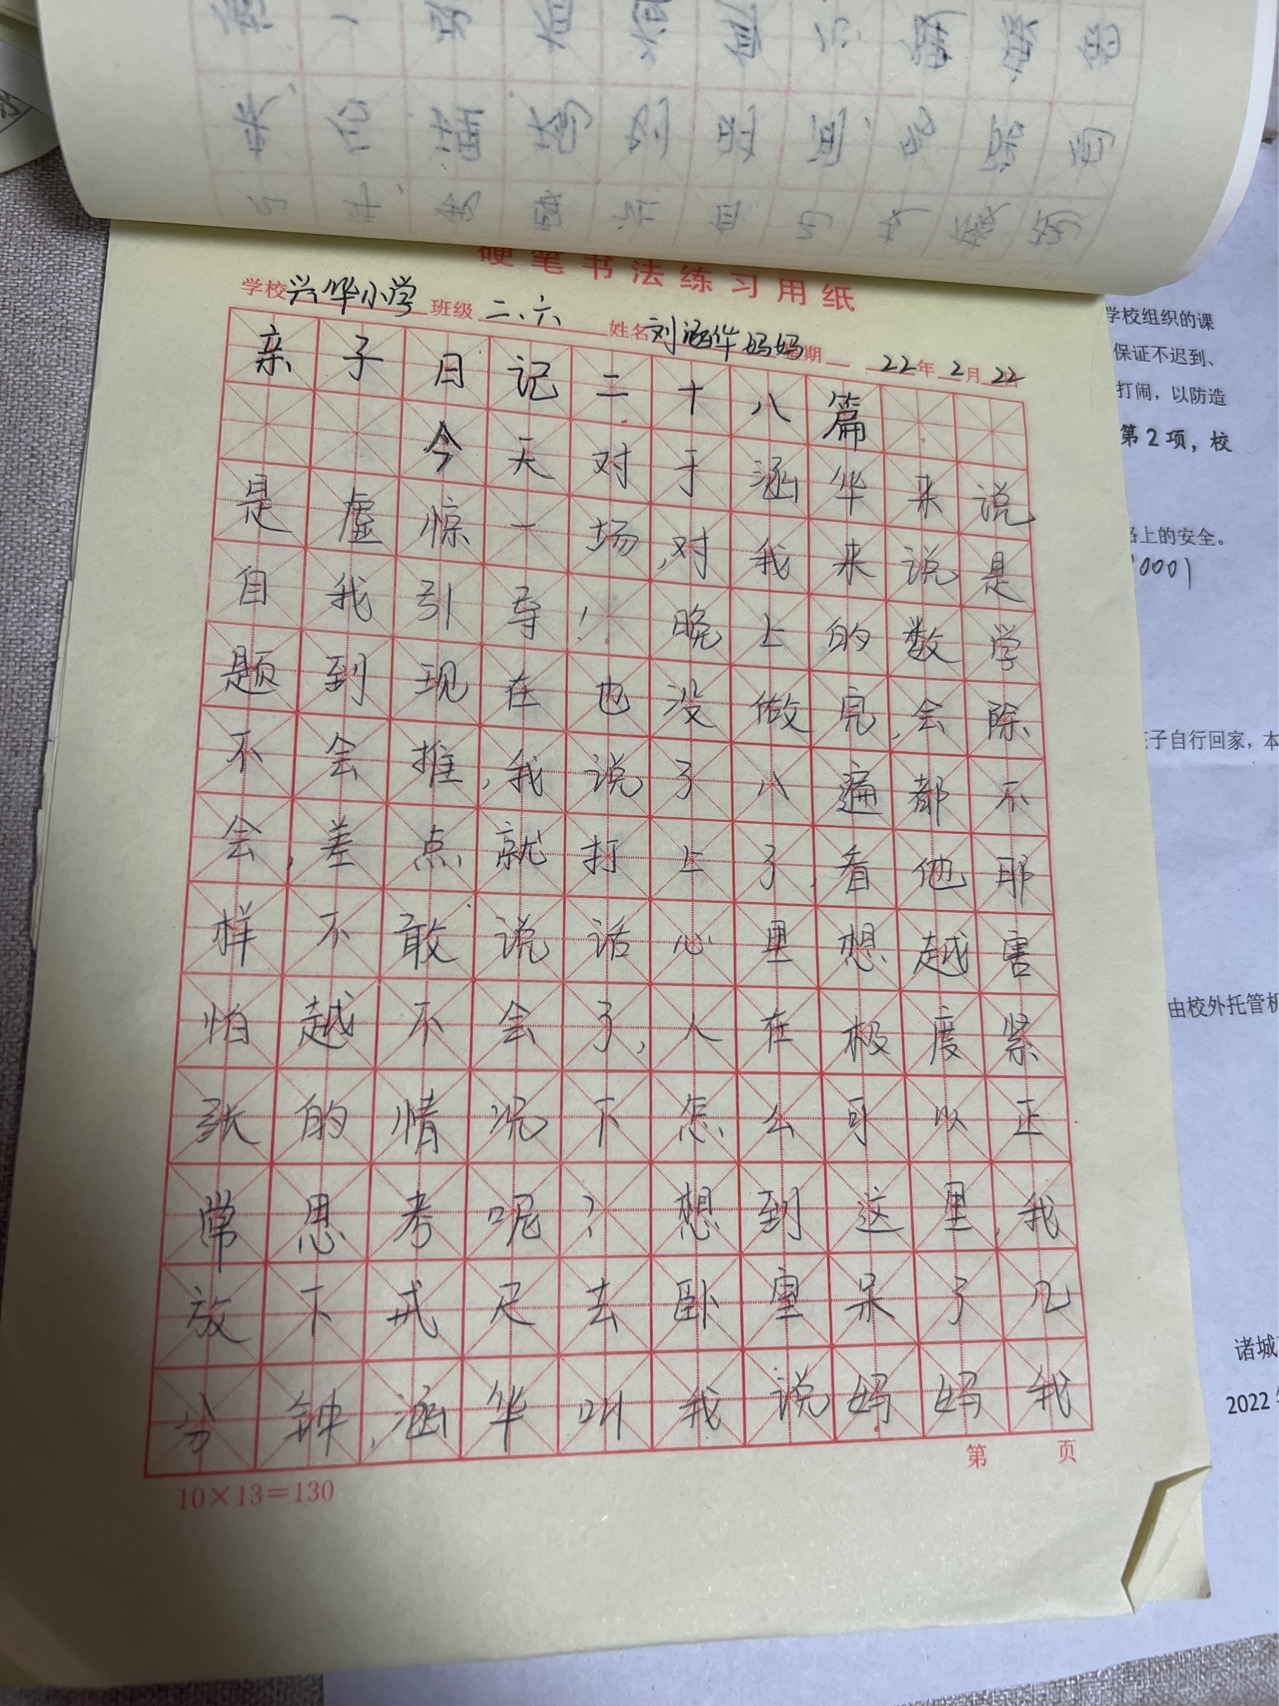 硬笔书法练习用纸
学校兴华小学 班级二、六 姓名刘涵华妈妈 期 22年2月22
亲子日记二十八篇
今天对于涵华来说
是虚惊一场,对我来说是
自我引导! 晚上的数学
题到现在也没做完,会除
不会推,我说了八遍都不
会,差点就打上了,看他那
样不敢说话心里想越害
怕越不会了,人在极度紧
张的情况下怎么可以正
常思考呢?想到这里,我
放下戒尺去卧室呆了几
分钟,涵华叫我说妈妈我
第 页
10×13=130
学校组织的课
保证不迟到、
打闹，以防造
第2项，校
路上的安全。
0001
子自行回家，本
由校外托管机
诸城
2022年